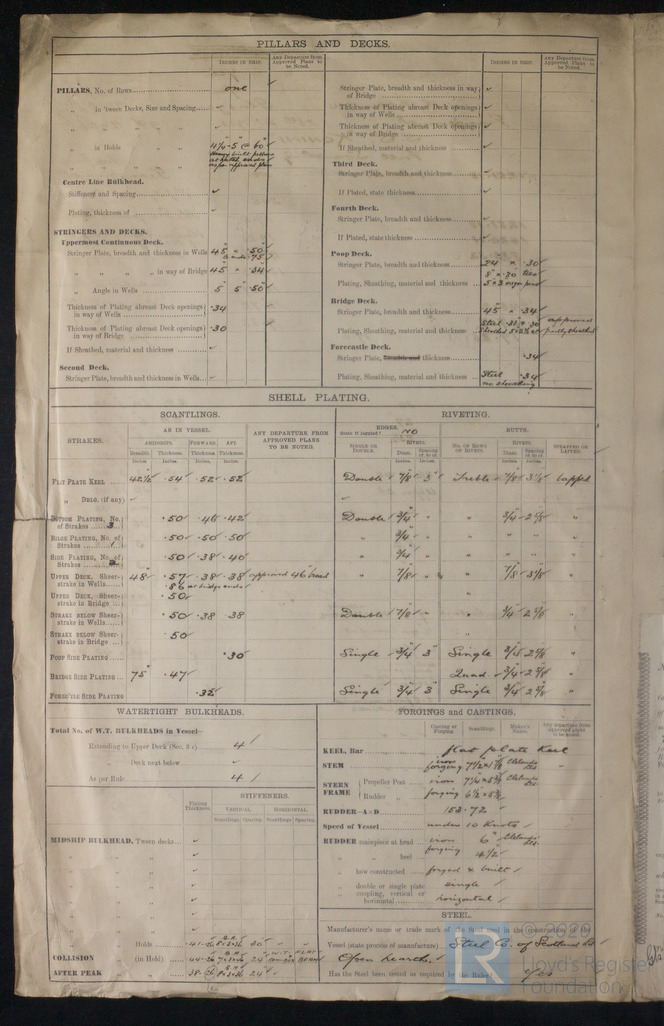 PILLARS AND DECKS.
INCHES IN SHIP.
Any Departure from Approved Plans to be Noted.
PILLARS, No. of Rows one
„ in 'tween Decks, Size and Spacing
„ in Holds
Centre Line Bulkhead.
Stiffener and Spacing
Plating, thickness of
STRINGERS AND DECKS.
Uppermost Continuous Deck.
Stringer Plate, breadth and thickness in Wells 45 × .50
„ „ „ „ in way of Bridge 45 × .34
„ Angle in Wells 5 5 .50
Thickness of Plating abreast Deck openings in way of Wells .34
Thickness of Plating abreast Deck openings in way of Bridge .30
If Sheathed, material and thickness
Second Deck.
Stringer Plate, breadth and thickness in Wells
INCHES IN SHIP.
Any Departure from Approved Plans to be Noted.
Stringer Plate, breadth and thickness in way of Bridge
Thickness of Plating abreast Deck openings in way of Wells
Thickness of Plating abreast Deck openings in way of Bridge
If Sheathed, material and thickness
Third Deck.
Stringer Plate, breadth and thickness
If Plated, state thickness
Fourth Deck.
Stringer Plate, breadth and thickness
If Plated, state thickness
Poop Deck.
Stringer Plate, breadth and thickness 24 × .30
Plating, Sheathing, material and thickness
Bridge Deck.
Stringer Plate, breadth and thickness 45 × .34
Plating, Sheathing, material and thickness Steel approved partly sheathed
Forecastle Deck.
Stringer Plate, breadth and thickness .34
Plating, Sheathing, material and thickness Steel .34 no sheathing
SHELL PLATING.
SCANTLINGS.
RIVETING.
STRAKES.
AS IN VESSEL.
ANY DEPARTURE FROM APPROVED PLANS TO BE NOTED.
EDGES.
State if joggled? no
BUTTS.
AMIDSHIPS. FORWARD. AFT.
Breadth. Thickness. Thickness. Thickness.
SINGLE OR DOUBLE.
RIVETS.
No. OF ROWS OF RIVETS.
RIVETS.
STRAPPED OR LAPPED.
FLAT PLATE KEEL 42½ .54 .52 .52 Double 7/8 3" Treble 7/8 lapped
„ DBLG. (if any)
BOTTOM PLATING, No. of Strakes 3 .50 .46 .42 Double 3/4 „ „ 3/4
BILGE PLATING, No. of Strakes 1 .50 .50 .50 „ 3/4 „ „ „ „
SIDE PLATING, No. of Strakes .50 .38 .40 „ 3/4
UPPER DECK, Sheerstrake in Wells 48 .57 .38 .38 approved 46 broad „ 7/8 „ „ 7/8
UPPER DECK, Sheerstrake in Bridge .50
STRAKE BELOW Sheerstrake in Wells .50 .38 .38 Double 7/8 „ „ 3/4
STRAKE BELOW Sheerstrake in Bridge .50
POOP SIDE PLATING .30 Single 3/4 3" Single 3/4
BRIDGE SIDE PLATING 75" .47 Quad. 3/4
FORE'TLE SIDE PLATING Single 3/4 3" Single 3/4
WATERTIGHT BULKHEADS.
Total No. of W.T. BULKHEADS in Vessel—
Extending to Upper Deck (Sec. 3 c) 4
„ Deck next below
As per Rule 4
Plating Thickness.
STIFFENERS.
VERTICAL. HORIZONTAL.
Scantlings. Spacing. Scantlings. Spacing.
MIDSHIP BULKHEAD, 'Tween decks
„ „
Holds
COLLISION (in Hold)
AFTER PEAK „
FORGINGS and CASTINGS.
Casting or Forging. Scantlings. Maker's Name. Any departure from approved plans to be noted.
KEEL, Bar flat plate Keel
STEM iron forging
STERN FRAME
Propeller Post iron
Rudder „ forging
RUDDER—A×D 152.72
Speed of Vessel under 10 Knots
RUDDER mainpiece at head iron forging 6"
„ „ heel 4½
„ how constructed forged & built
„ double or single plate single
„ coupling, vertical or horizontal horizontal
STEEL.
Manufacturer's name or trade mark of the Steel used in the construction of the
Vessel (state process of manufacture) Steel Co. of Scotland Ld
Open hearth.
Has the Steel been tested as required by the Rules? Yes
© 2020
LR
Lloyd's Register
Foundation